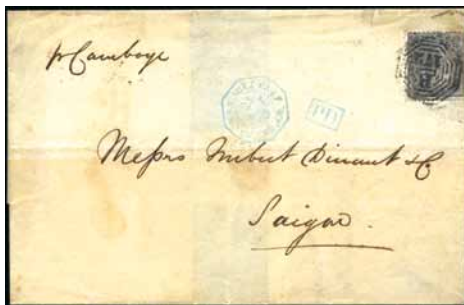 pr Camboge
PD
Messrs Imbert Dinant & C
Saigon.